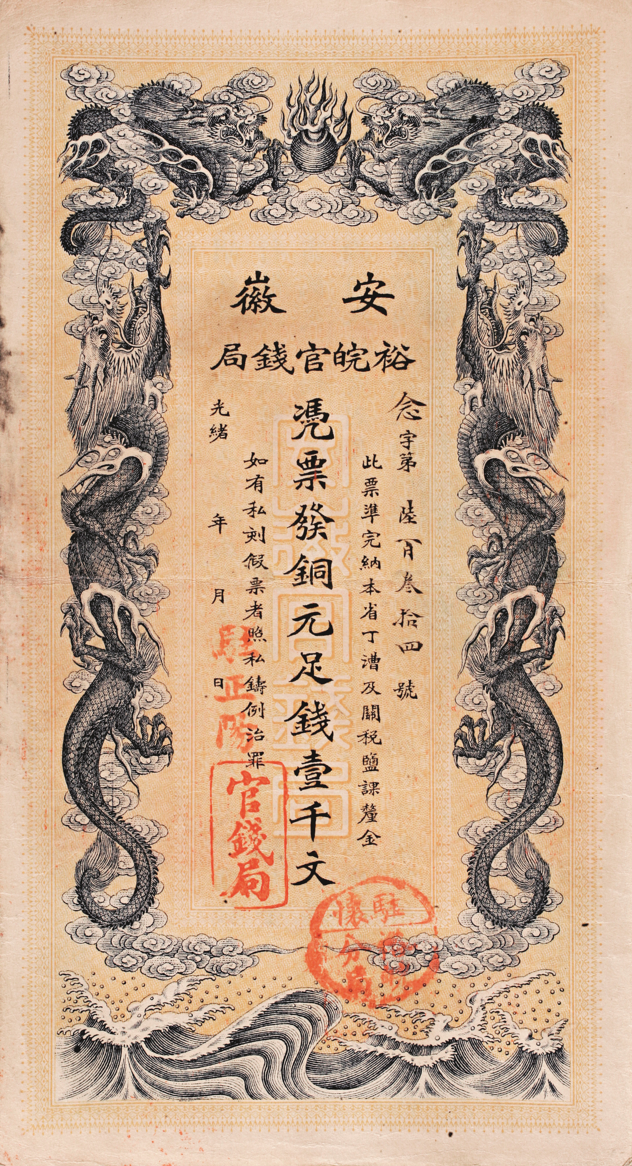 安徽
裕皖官錢局
念字第陸百叁拾四號
此票準完納本省丁漕及關税鹽課釐金
憑票發銅元足錢壹千文
如有私刻假票者照私鑄例治罪
光緒 年 月 日
駐正陽
官錢局
駐懷
分局